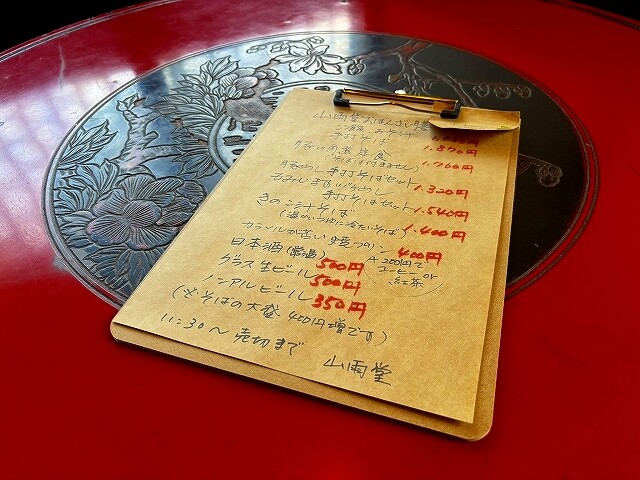 山雨堂
ご飯 みそ汁
手打そば
1.870円
豚の角煮定食
(そばは付きません) 1.760円
豚めし 手打そばセット 1.320円
手打そばセット 1.540円
きのこ汁そば
(温かいつゆに冷たいそば) 1.400円
カラメルが苦い焼プリン 400円
+200円で
コーヒー or
紅茶
日本酒(常温) 500円
グラス生ビール 500円
ノンアルビール 350円
(※そばの大盛 400円増です)
11:30〜売切まで
山雨堂